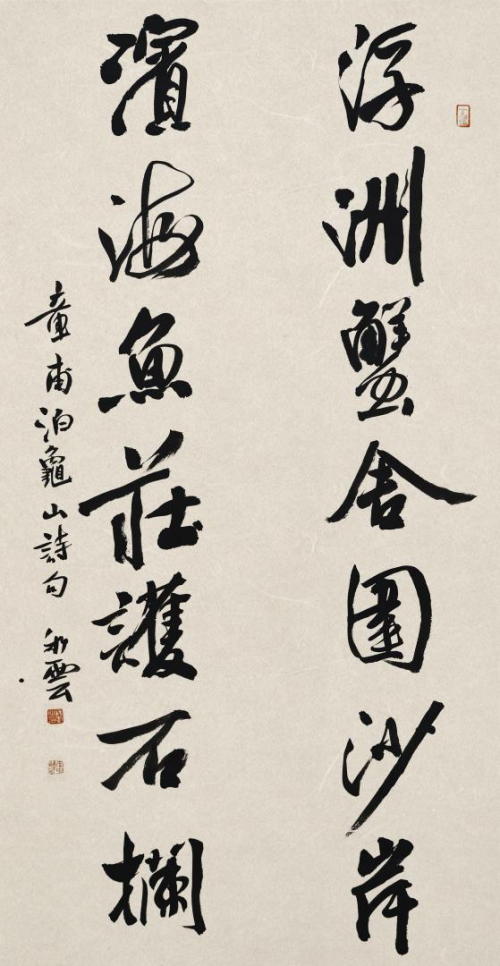 浮洲蟹舍圍沙岸
濱海魚莊護石欄
童甫泊龜山詩句 永雲